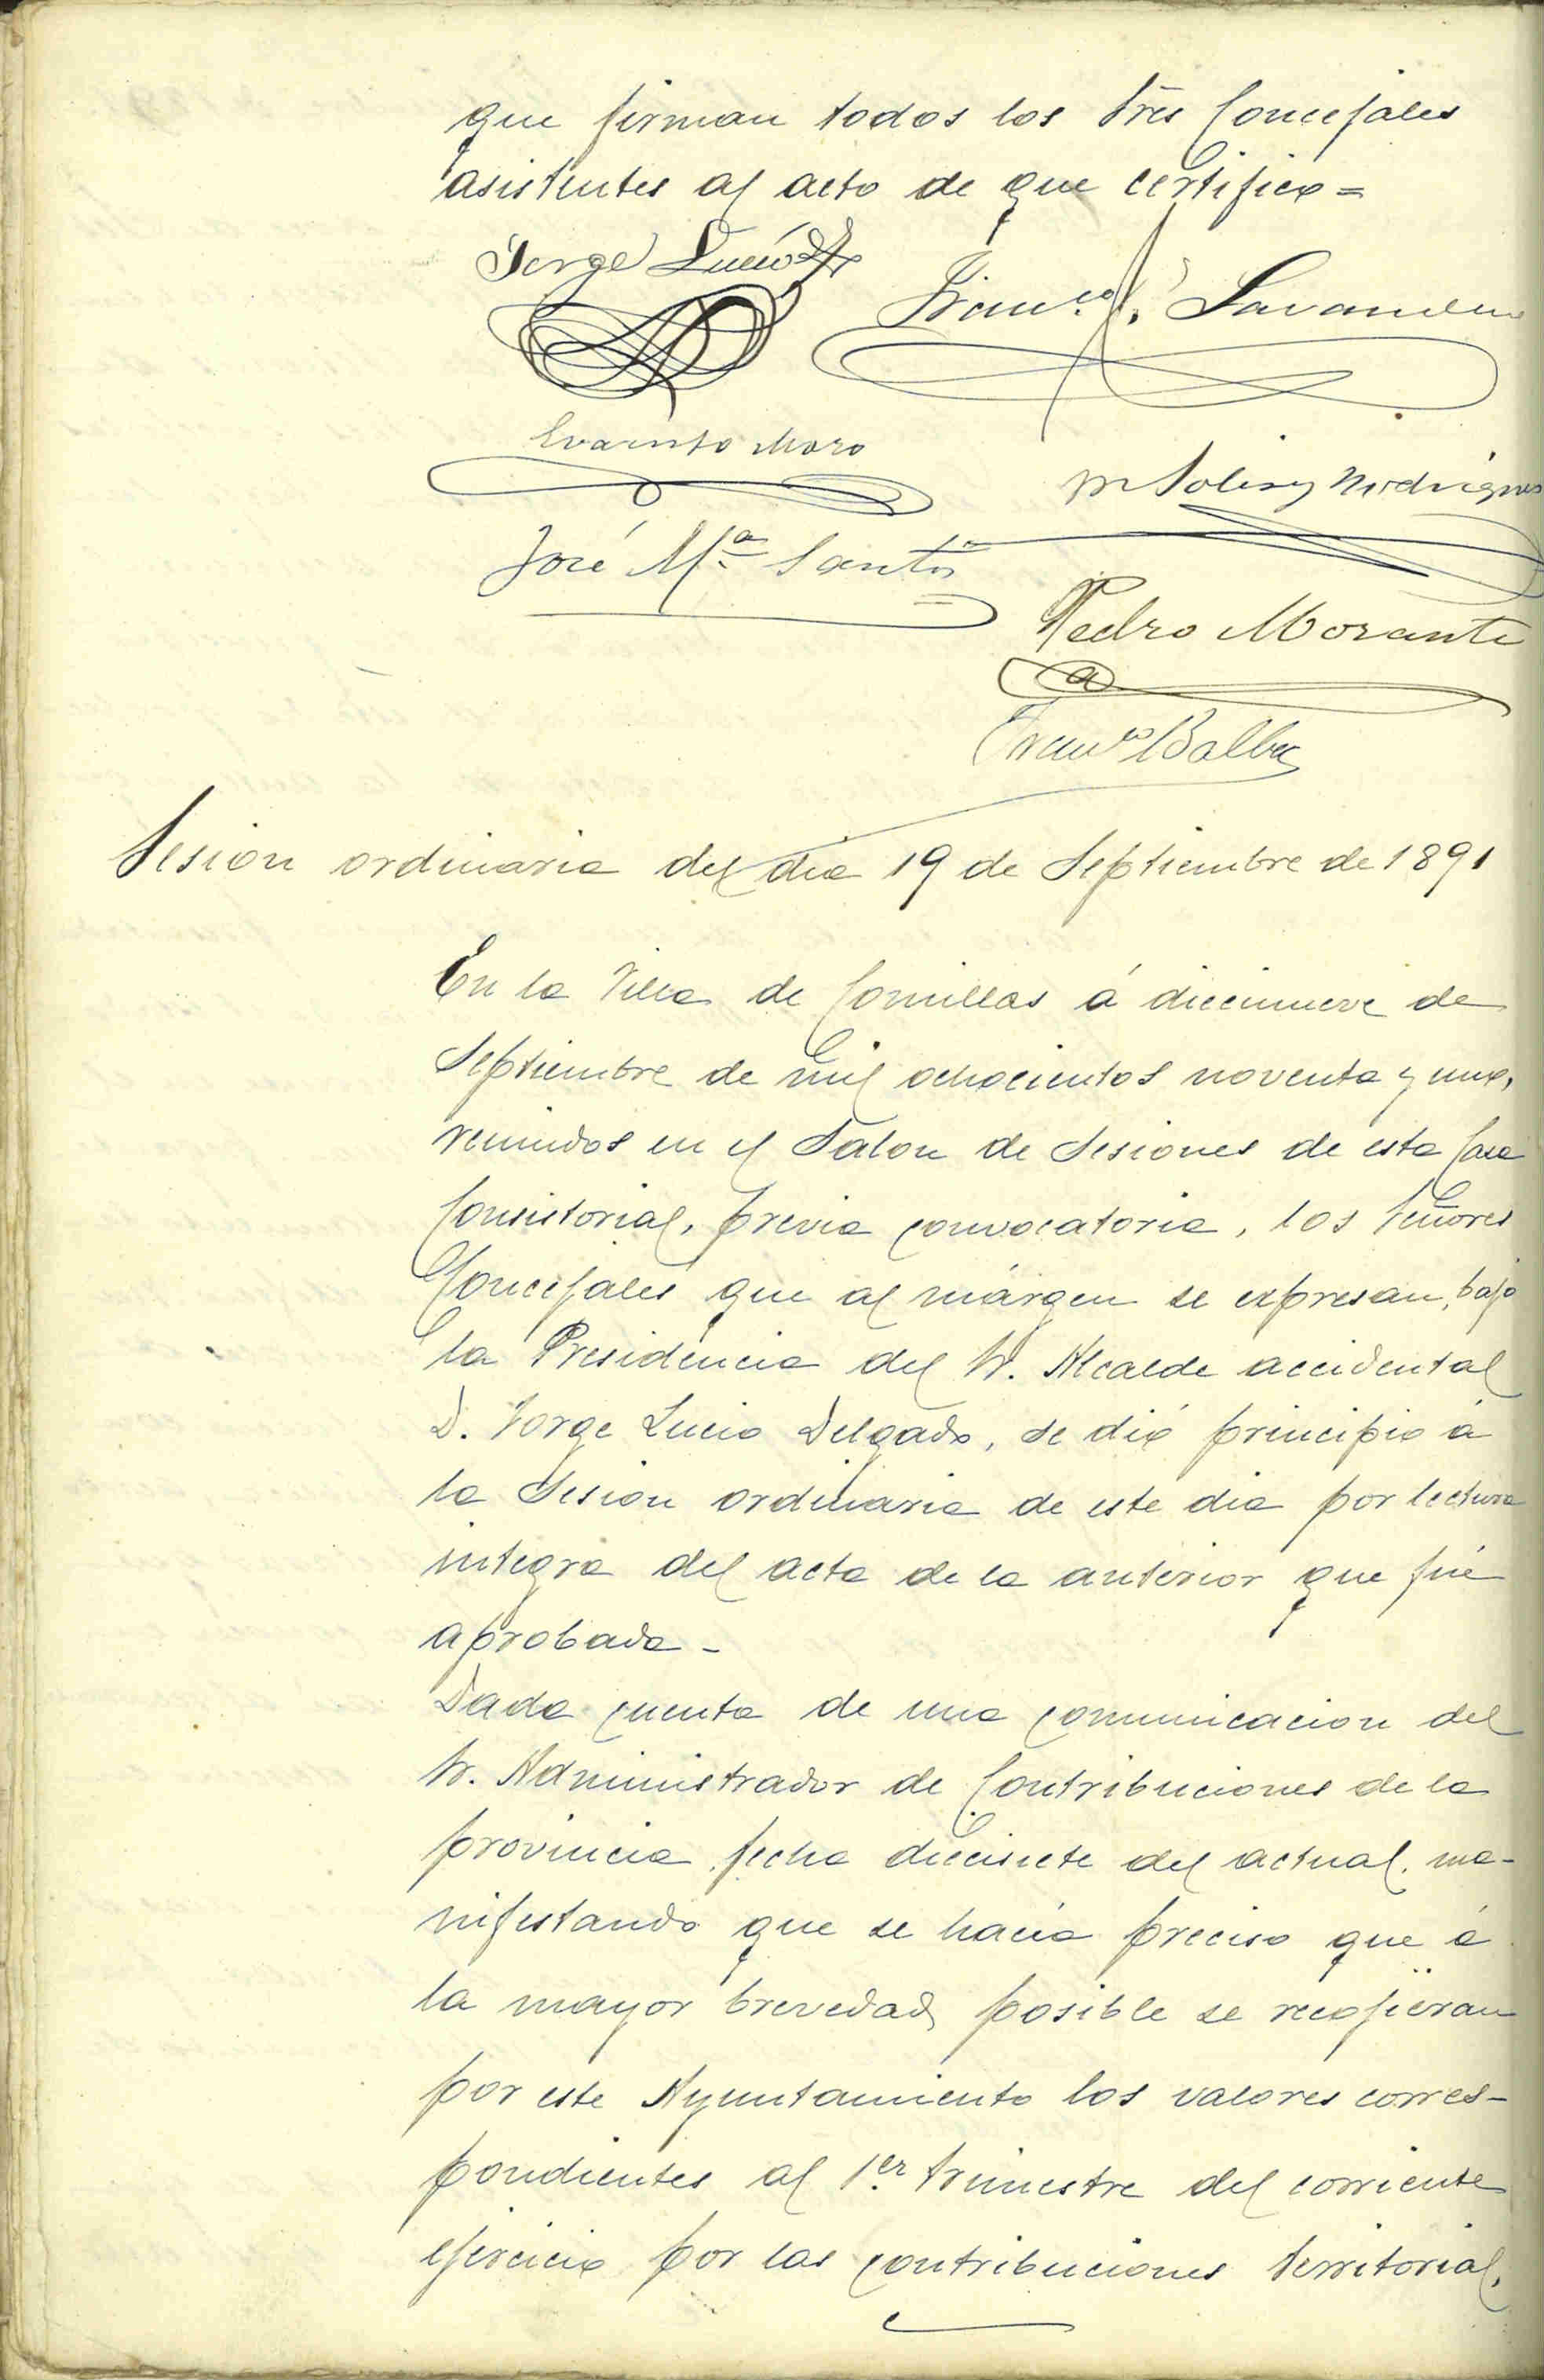 que firman todos los Sres Concejales
asistentes al acto de que certifico=
Jorge Lucio
Franco. Lavandero
Evaristo Moro
M Solis y Rodriguez
José Ma. Santos
Pedro Morante
Franco Balbas
Sesion ordinaria del dia 19 de Septiembre de 1891
En la Villa de Comillas á diecinueve de
Septiembre de mil ochocientos noventa y uno,
reunidos en el Salon de Sesiones de esta Casa
Consistorial, previa convocatoria, los Señores
Concejales que al márgen se expresan, bajo
la Presidencia del Sr. Alcalde accidental
D. Jorge Lucio Delgado, se dió principio á
la Sesion ordinaria de este dia por lectura
integra del acta de la anterior que fué
aprobada-
Dada cuenta de una comunicacion del
Sr. Administrador de Contribuciones de la
provincia, fecha diecisiete del actual, ma-
nifestando que se hacía preciso que á
la mayor brevedad posible se recojieran
por este Ayuntamiento los valores corres-
pondientes al 1er. trimestre del corriente
ejercicio por las contribuciones territorial,